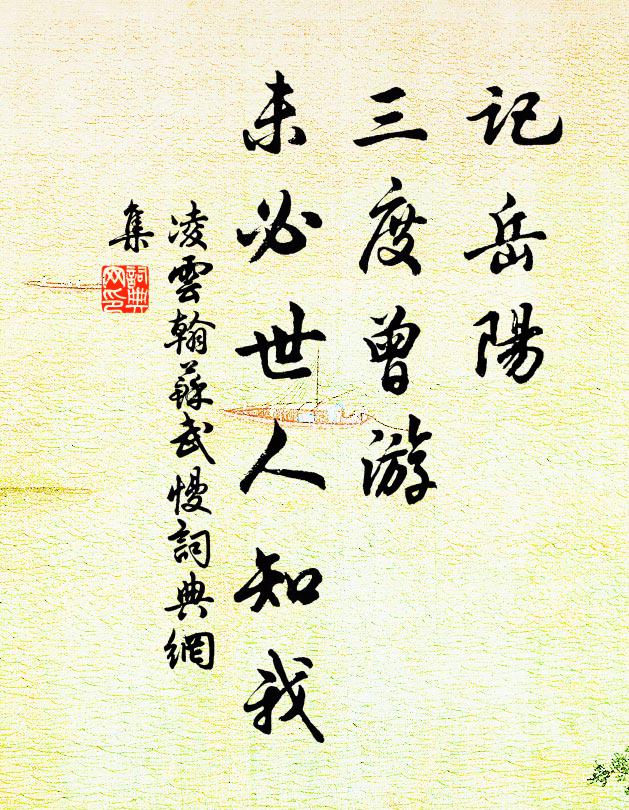 記岳陽
三度曾游
未必世人知我
凌雲翰蘇武慢詞典網
集
詞典網印